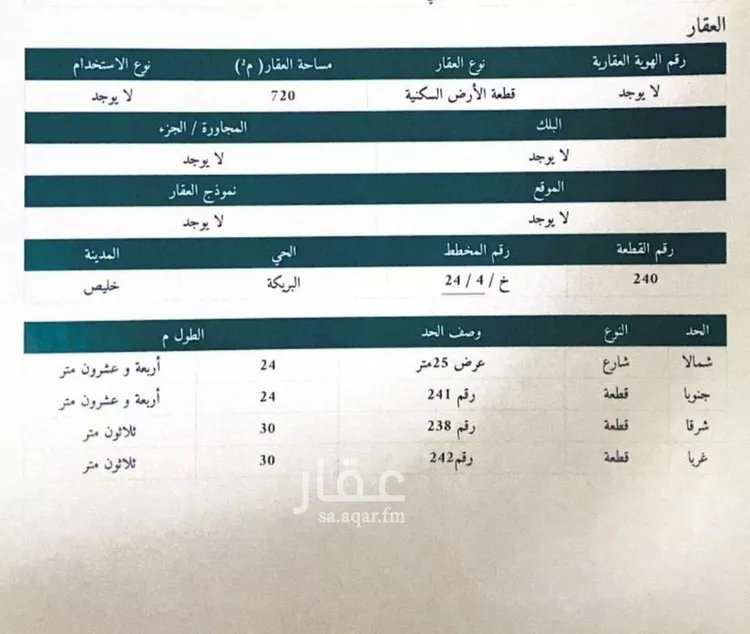 العقار
رقم الهوية العقارية نوع العقار مساحة العقار( م²) نوع الاستخدام
لا يوجد قطعة الأرض السكنية 720 لا يوجد
البلك المجاورة / الجزء
لا يوجد لا يوجد
الموقع نموذج العقار
لا يوجد لا يوجد
رقم القطعة رقم المخطط الحي المدينة
240 خ / 4 / 24 البريكة خليص
الحد النوع وصف الحد الطول م
شمالا شارع عرض 25متر 24 أربعة و عشرون متر
جنوبا قطعة رقم 241 24 أربعة و عشرون متر
شرقا قطعة رقم 238 30 ثلاثون متر
غربا قطعة رقم242 30 ثلاثون متر
عقار
sa.aqar.fm